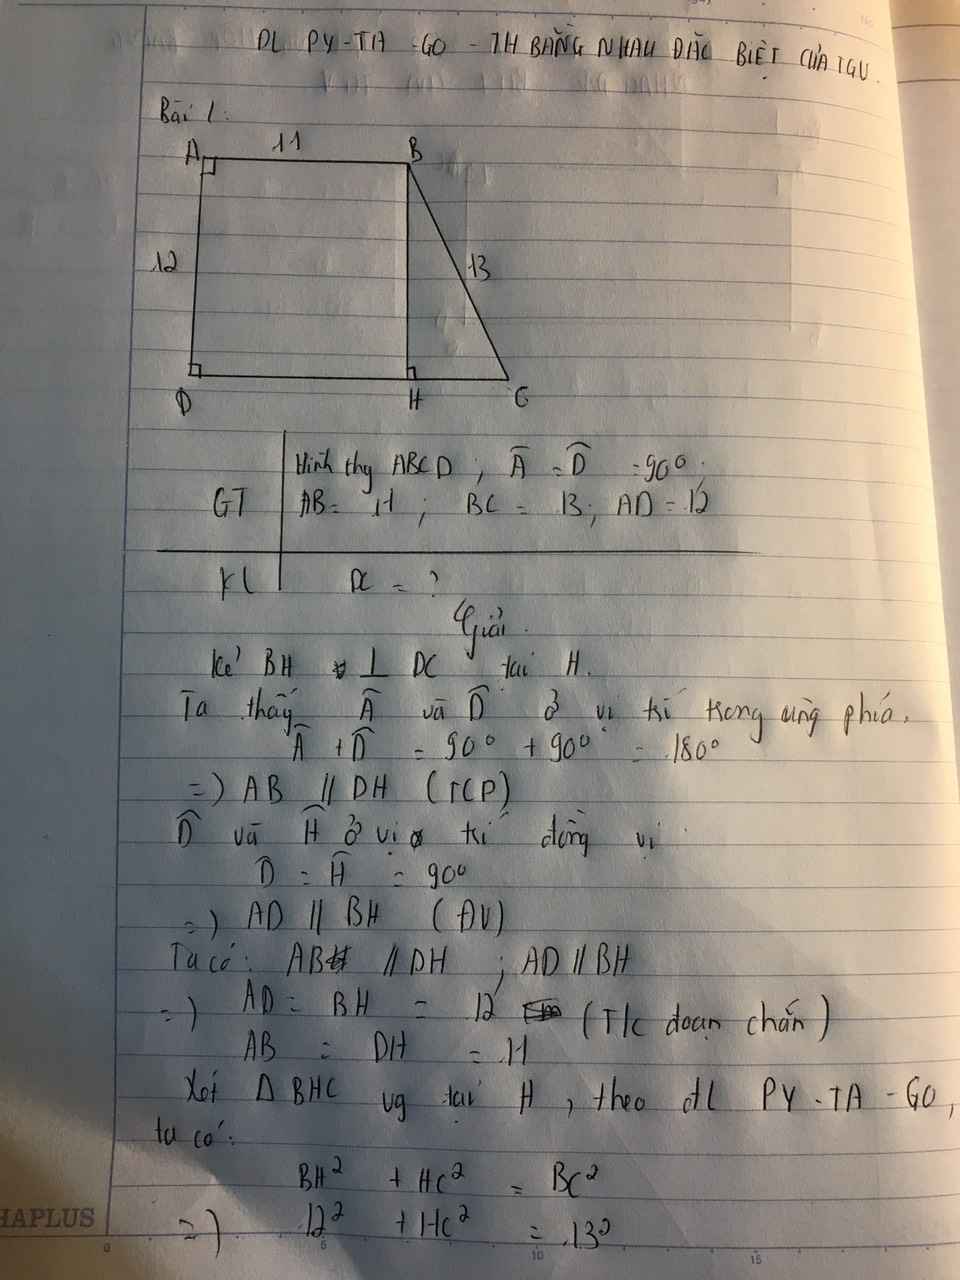 ĐL PY-TA-GO - TH BẰNG NHAU ĐẶC BIỆT CỦA TGV.
Bài 1:
A 11 B
12 13
D H C
GT Hình thg ABCD ; Â = D̂ = 90°.
AB = 11 ; BC = 13; AD = 12
KL DC = ?
Giải.
Kẻ BH ⊥ DC tại H.
Ta thấy Â và D̂ ở vị trí trong cùng phía.
Â + D̂ = 90° + 90° = 180°
=> AB // DH (TCP)
D̂ và Ĥ ở vị trí đồng vị
D̂ = Ĥ = 90°
=> AD // BH (ĐV)
Ta có: AB // DH ; AD // BH
=> AD = BH = 12 (T/c đoạn chắn)
AB = DH = 11
Xét Δ BHC vg tại H, theo đl PY-TA-GO,
ta có:
BH² + HC² = BC²
=> 12² + HC² = 13²
HAPLUS
0 5 10 15